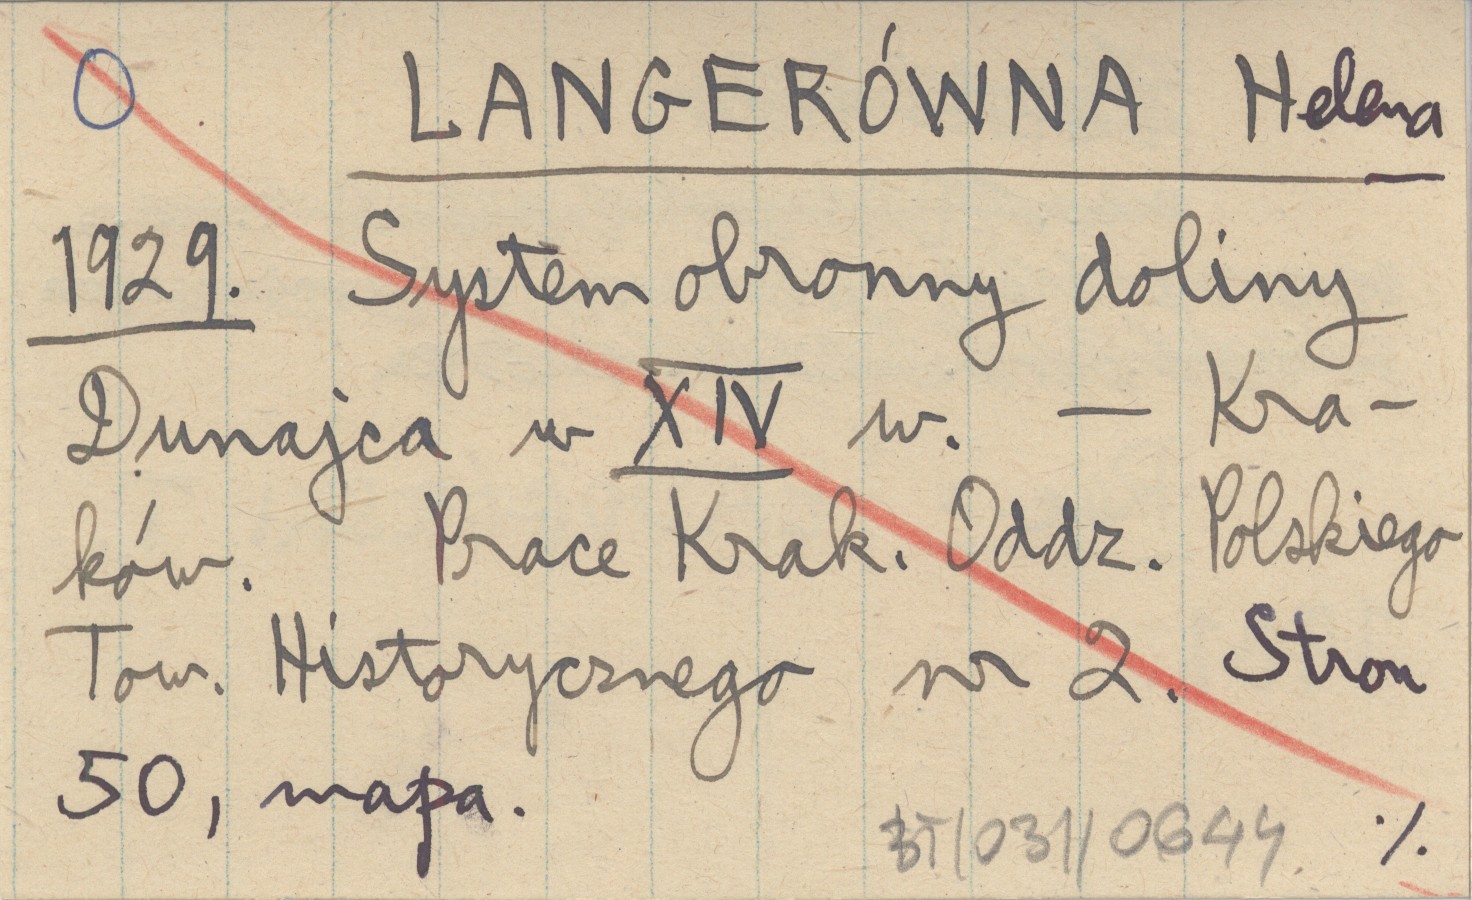 O LANGERÓWNA Helena
1929. System obronny doliny
Dunajca w XIV w. — Kra-
ków. Prace Krak. Oddz. Polskiego
Tow. Historycznego nr 2. Stron
50, mapa.
BT/031/0644 ./.